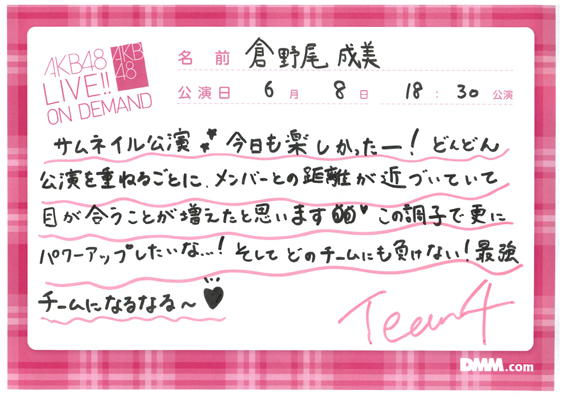 AKB48
LIVE!!
ON DEMAND
AKB
48
名前 倉野尾 成美
公演日 6月 8日 18:30公演
サムネイル公演 今日も楽しかったー！どんどん
公演を重ねるごとに、メンバーとの距離が近づいていて
目が合うことが増えたと思います この調子で更に
パワーアップしたいな…！そしてどのチームにも負けない！最強
チームになるなる〜♥
Team4
DMM.com